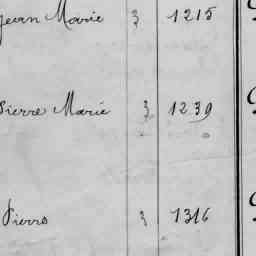 Jean Marie 3 1215
Pierre Marie 3 1239
Pierre 3 1316